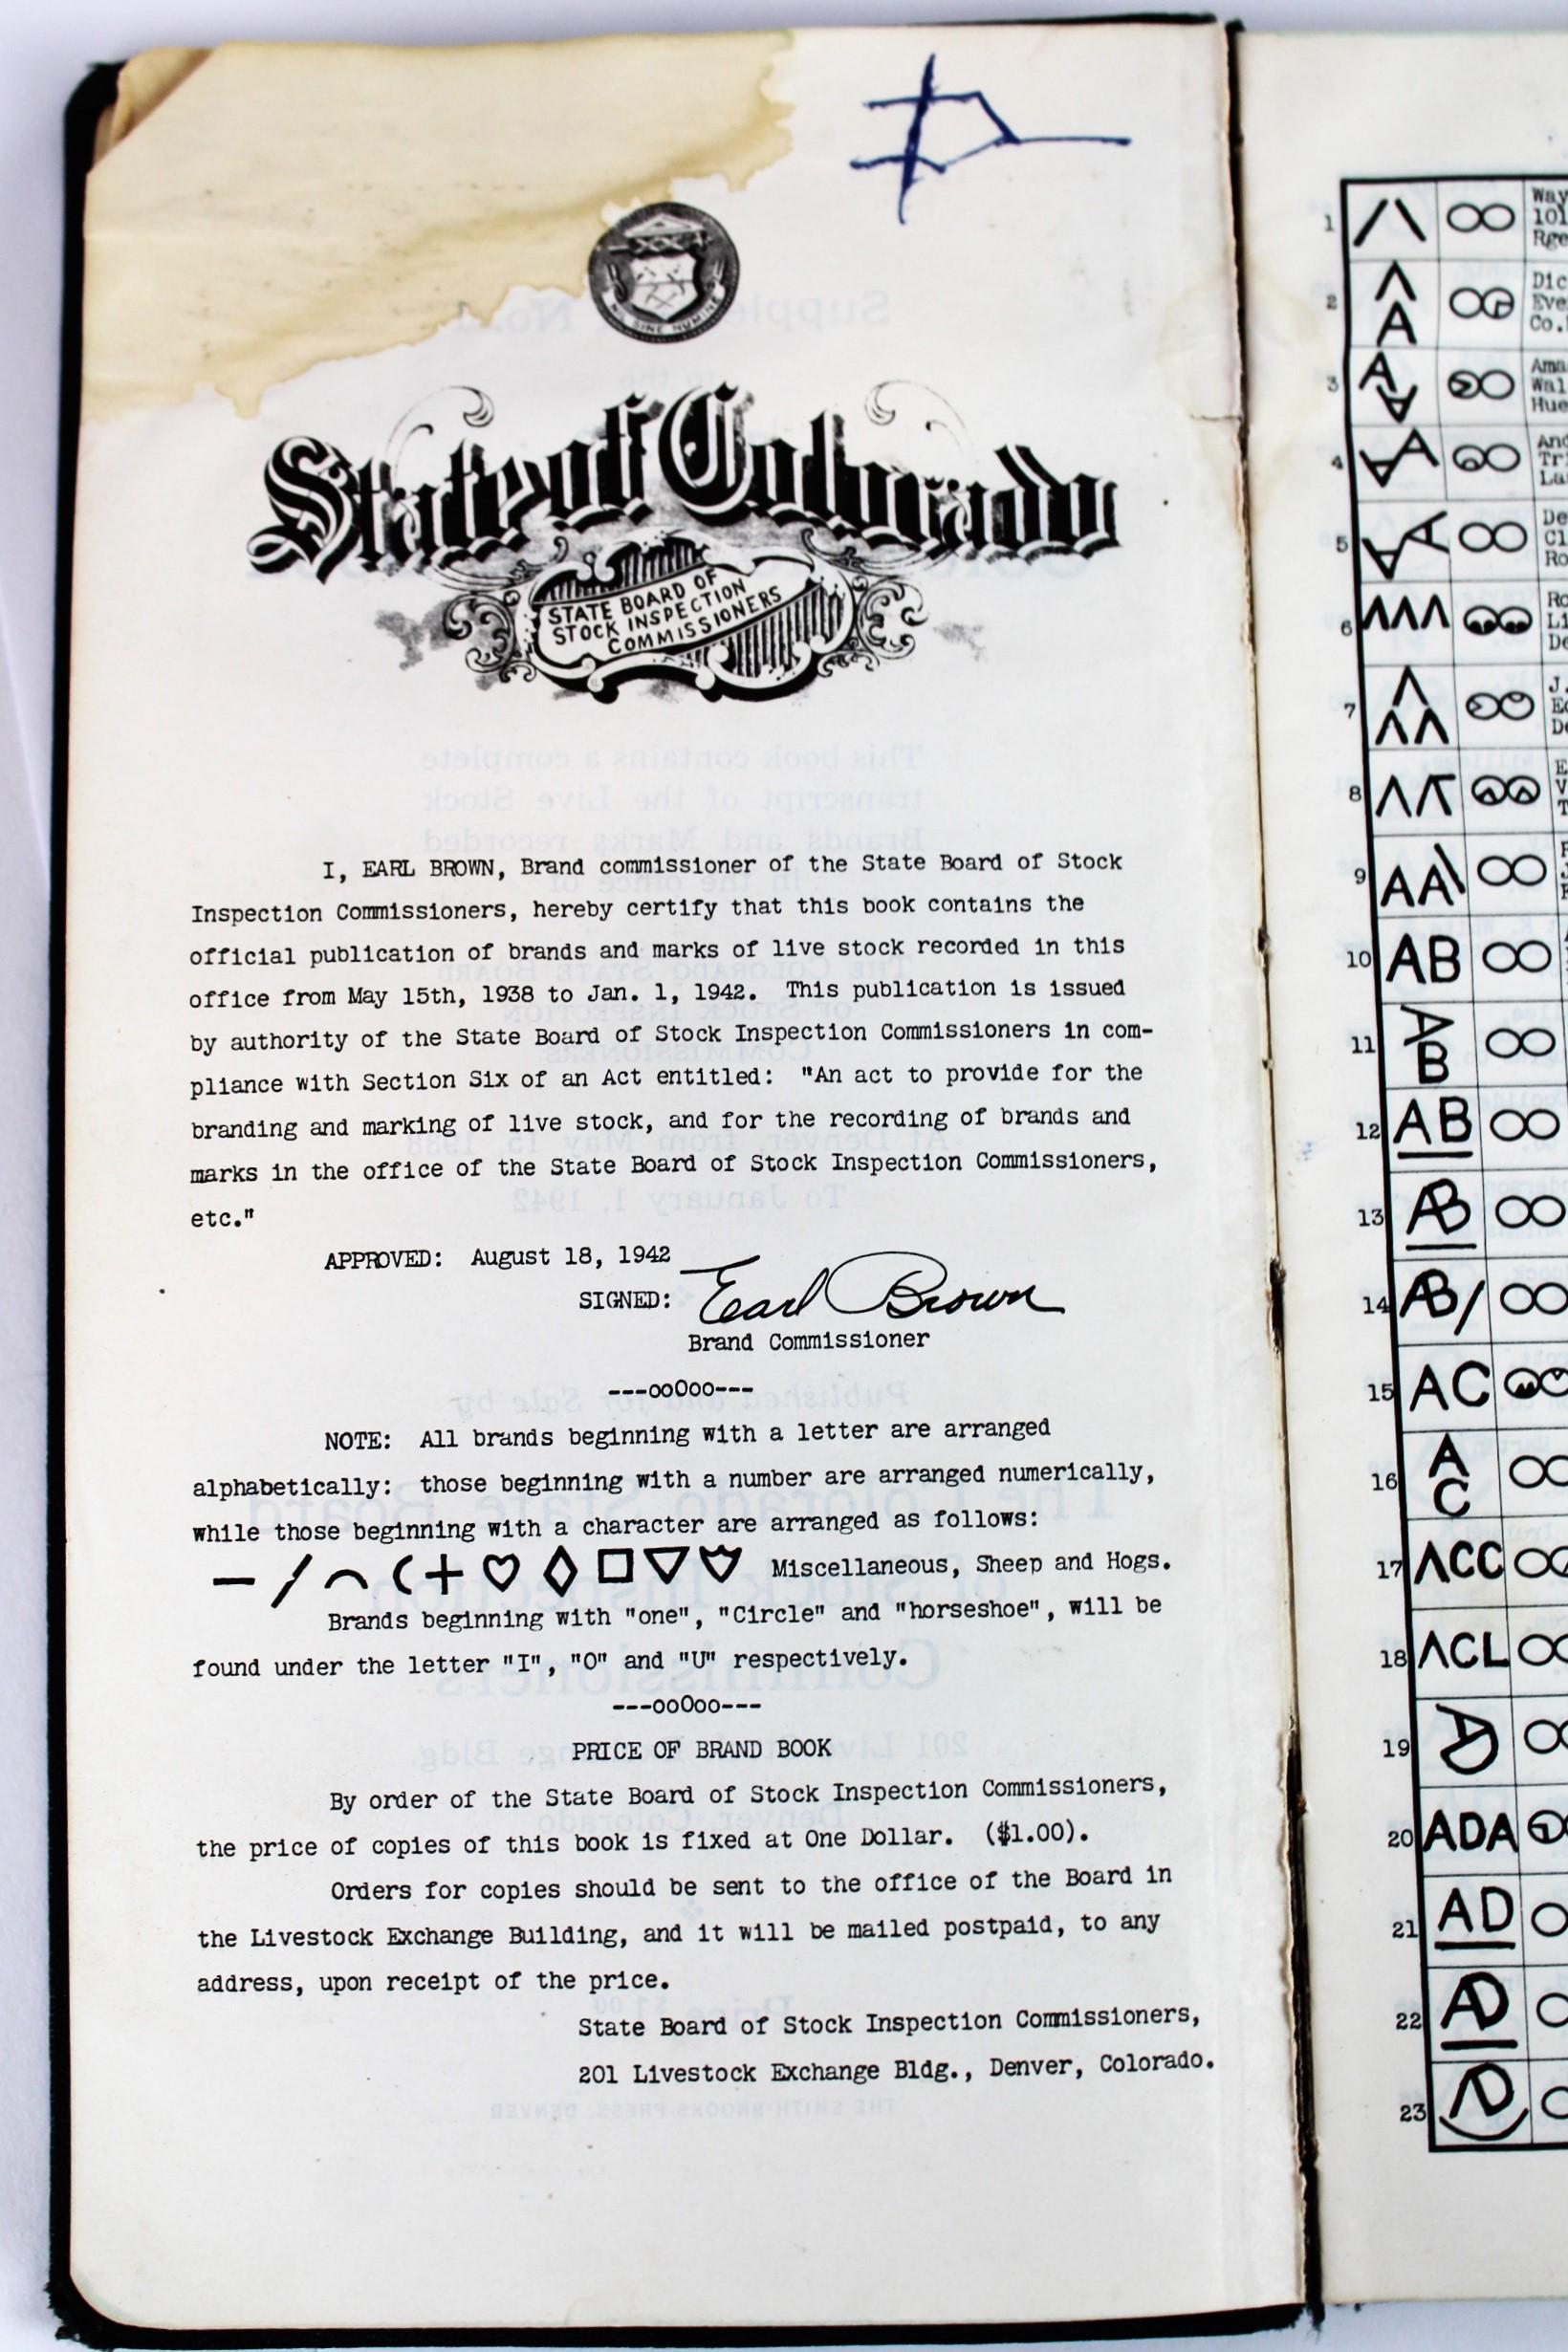 NIL SINE NUMINE
State of Colorado
STATE BOARD OF
STOCK INSPECTION
COMMISSIONERS
I, EARL BROWN, Brand commissioner of the State Board of Stock
Inspection Commissioners, hereby certify that this book contains the
official publication of brands and marks of live stock recorded in this
office from May 15th, 1938 to Jan. 1, 1942. This publication is issued
by authority of the State Board of Stock Inspection Commissioners in com-
pliance with Section Six of an Act entitled: "An act to provide for the
branding and marking of live stock, and for the recording of brands and
marks in the office of the State Board of Stock Inspection Commissioners,
etc."
APPROVED: August 18, 1942
SIGNED: Earl Brown
Brand Commissioner
---ooOoo---
NOTE: All brands beginning with a letter are arranged
alphabetically: those beginning with a number are arranged numerically,
while those beginning with a character are arranged as follows:
Miscellaneous, Sheep and Hogs.
Brands beginning with "one", "Circle" and "horseshoe", will be
found under the letter "I", "O" and "U" respectively.
---ooOoo---
PRICE OF BRAND BOOK
By order of the State Board of Stock Inspection Commissioners,
the price of copies of this book is fixed at One Dollar. ($1.00).
Orders for copies should be sent to the office of the Board in
the Livestock Exchange Building, and it will be mailed postpaid, to any
address, upon receipt of the price.
State Board of Stock Inspection Commissioners,
201 Livestock Exchange Bldg., Denver, Colorado.
1 Way
101
Rge
2 A Dic
Eve
Co.
3 A A Ama
Wal
Hue
4 A A And
Tr
La
5 A A De
Cl
Ro
6 Ro
Li
De
7 J.
Ec
De
8 E
V
T
9 AA\
10 AB
11 A B
12 AB
13 AB
14 AB/
15 AC
16 A
C
17 ACC
18 ACL
19 AD
20 ADA
21 AD
22 AD
23 AD